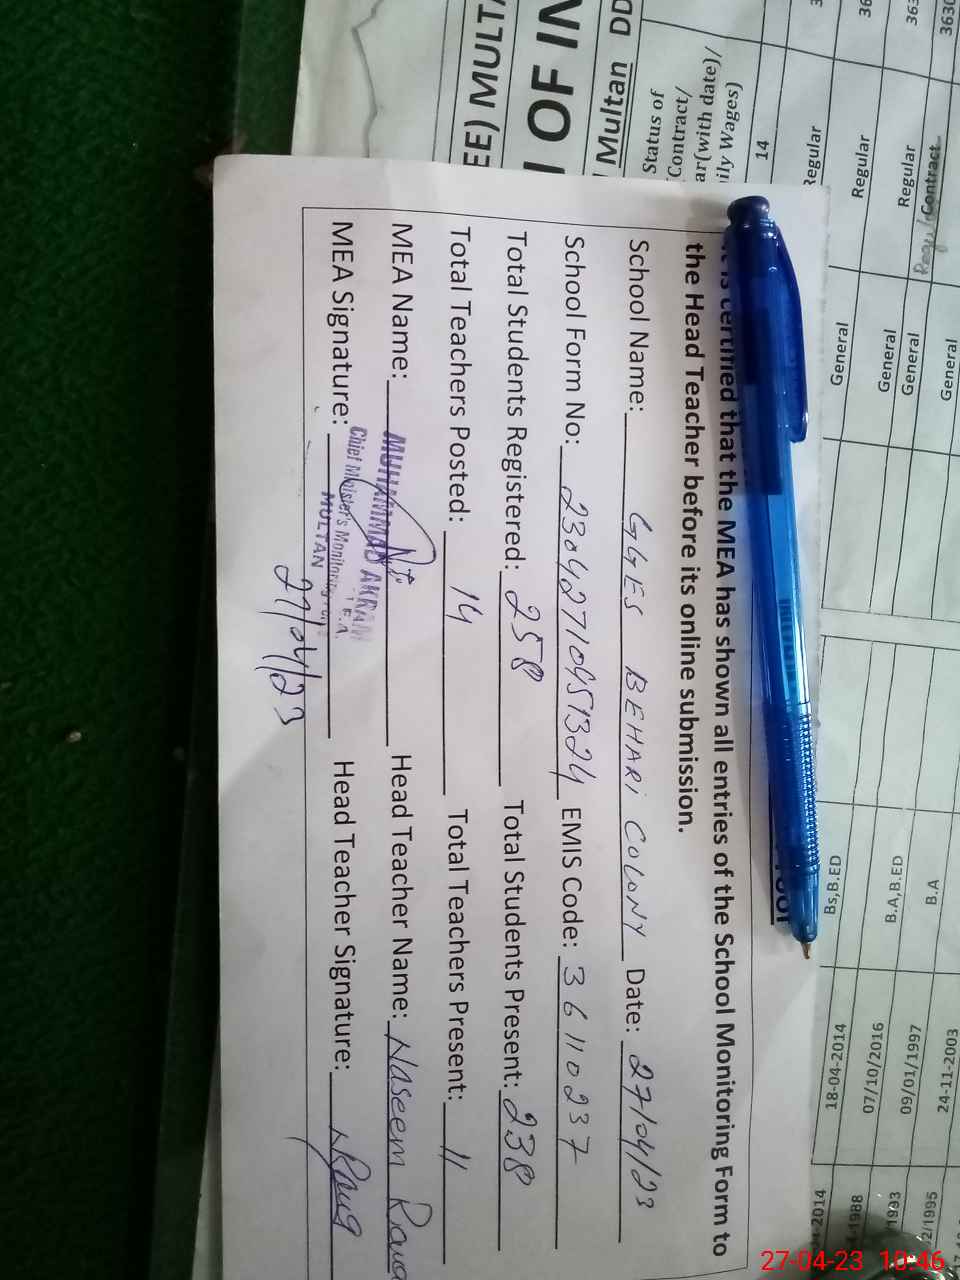 It is certified that the MEA has shown all entries of the School Monitoring Form to
the Head Teacher before its online submission.
School Name: GGES BEHARi COLONY Date: 27/04/23
School Form No: 230427104951324 EMIS Code: 36110237
Total Students Registered: 258 Total Students Present: 238
Total Teachers Posted: 14 Total Teachers Present: 11
MEA Name: MUHAMMAD AKRAM Head Teacher Name: Naseem
Chief Minister's Monitoring
MULTAN
MEA Signature: Head Teacher Signature:
27/04/23
N OF
EE) MULT
DD
Multan
Status of
Contract/
ily Wages)
14
Regular
Regular
Regular
Contract
General
General
General
General
Bs,B.ED
B.A,B.ED
B.A
18-04-2014
07/10/2016
09/01/1997
24-11-2003
2014
1988
1993
2/1995
36
363
3630
27-04-23 10:46